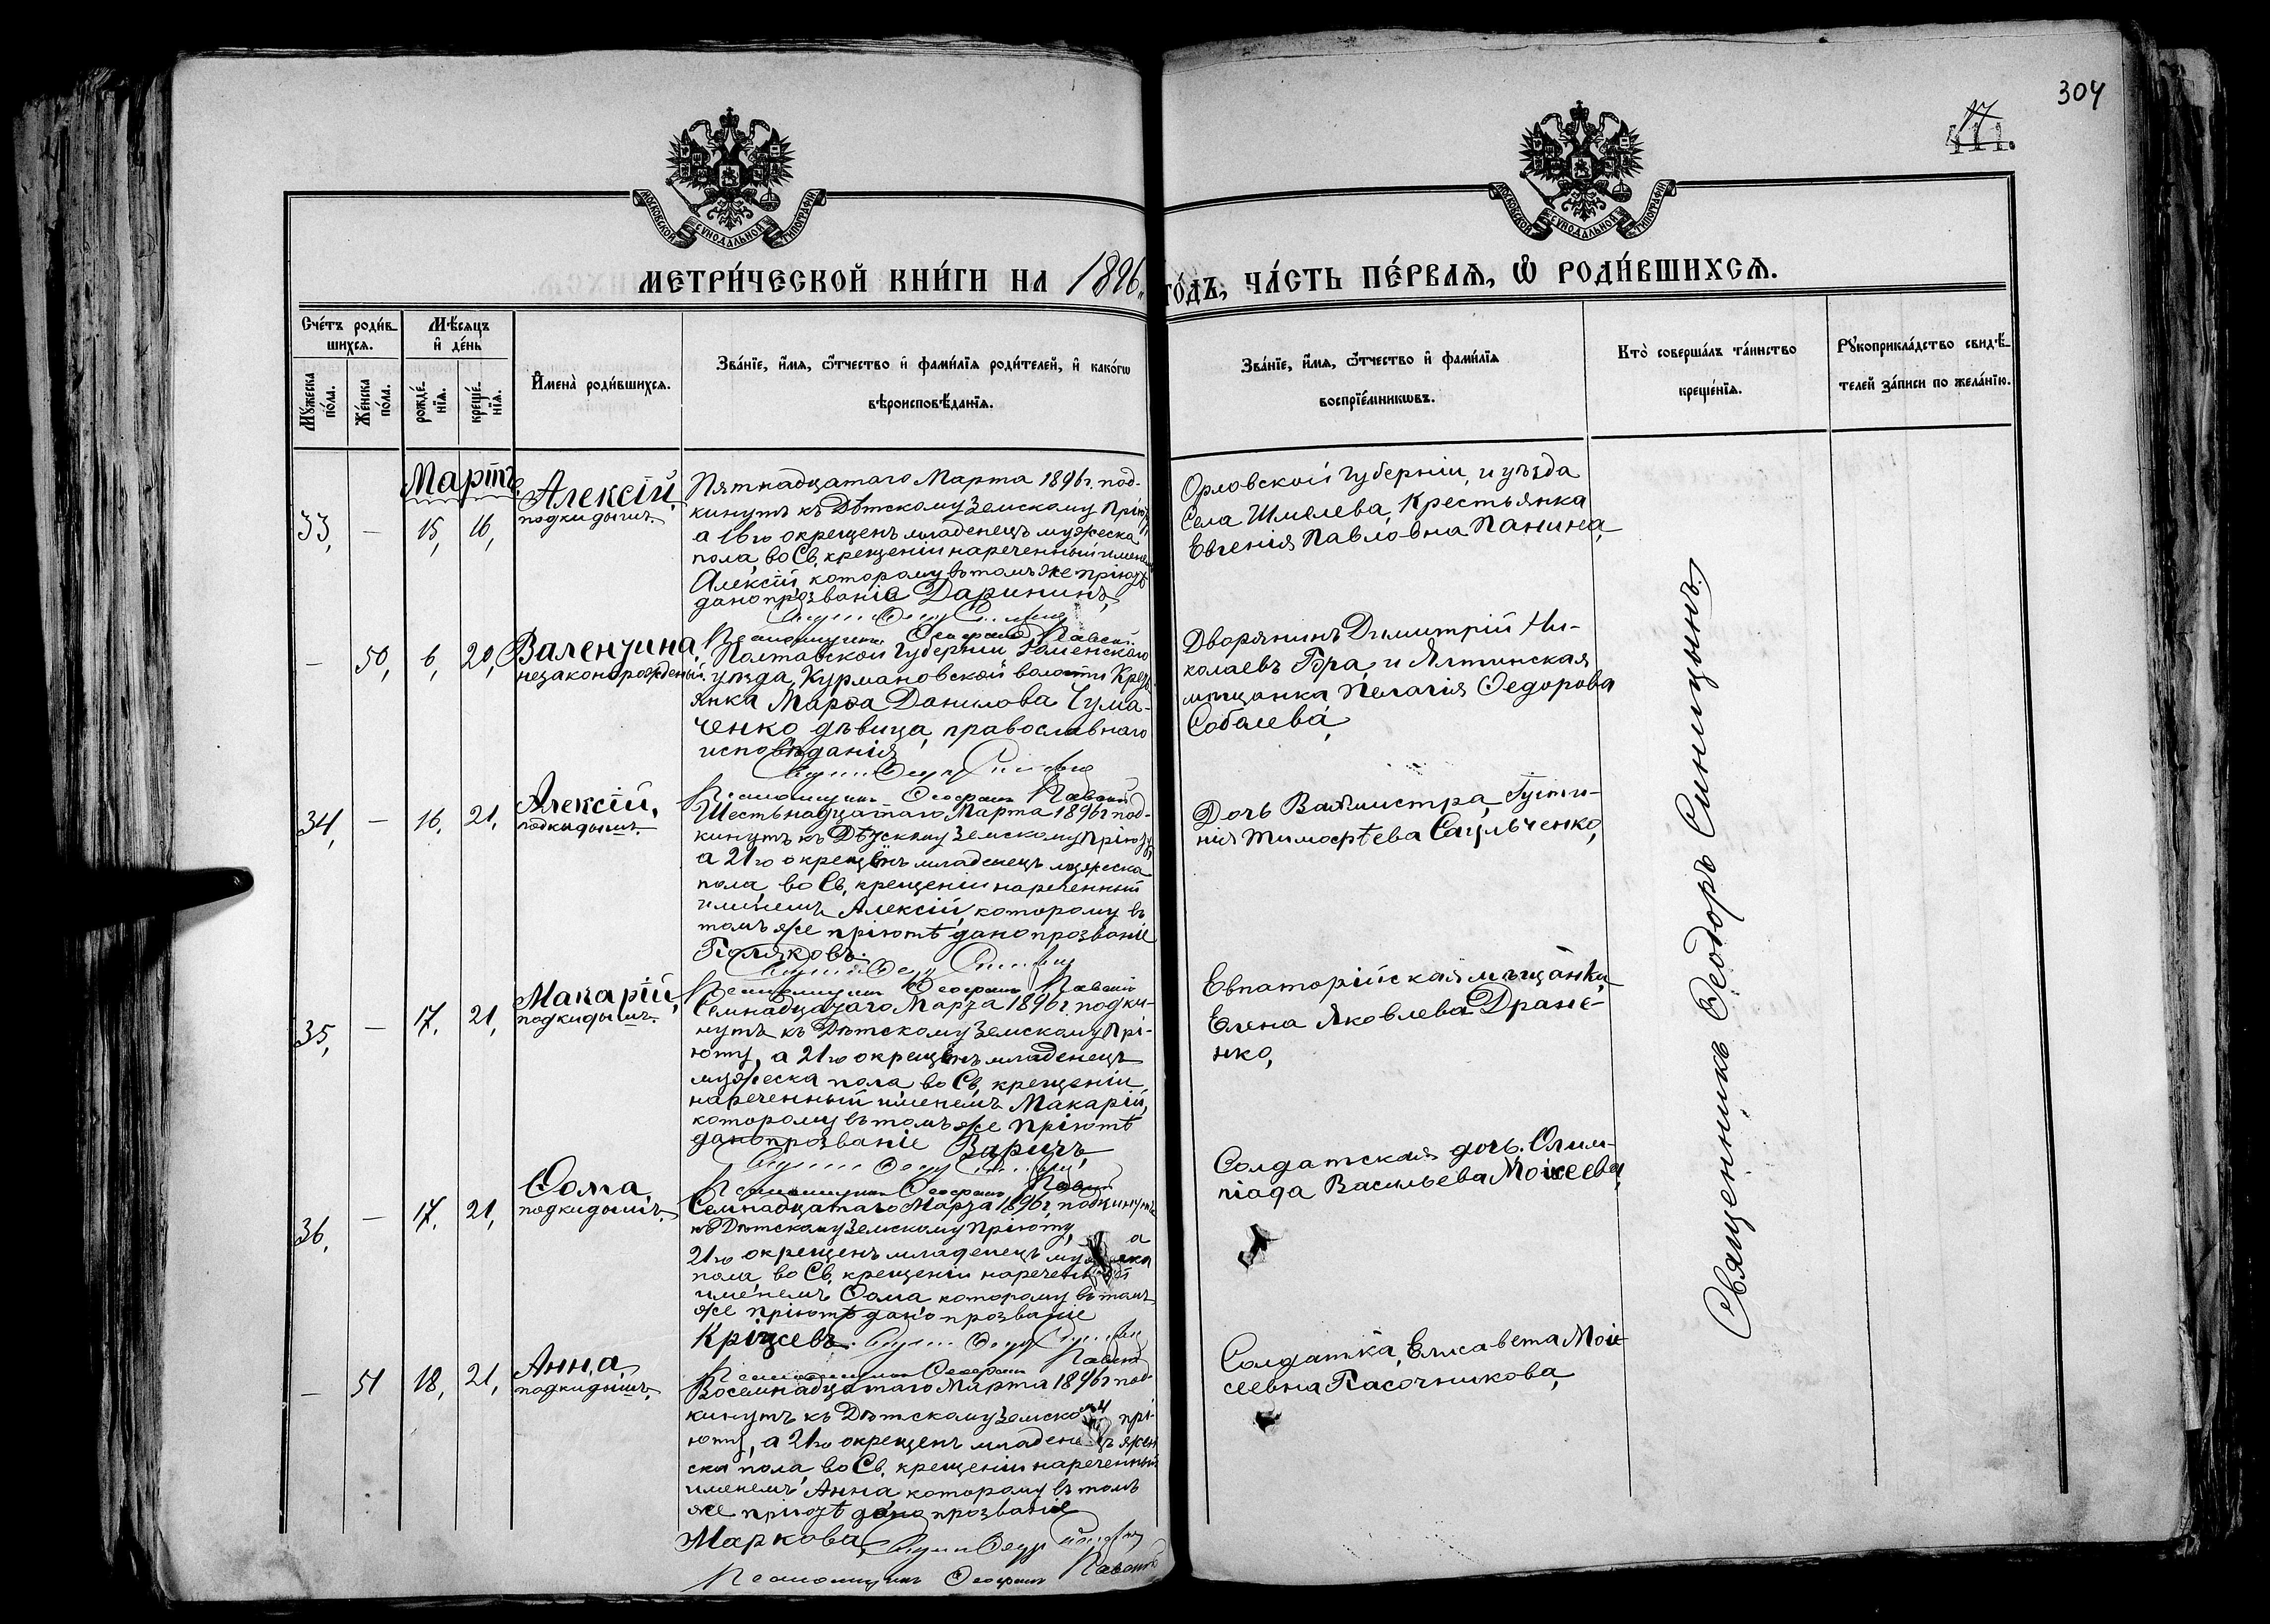 304
17
МОСКОВСКОЙ СУНОДАЛЬНОЙ ТИПОГРАФІИ
МОСКОВСКОЙ СУНОДАЛЬНОЙ ТИПОГРАФІИ
МЕТРИ́ЧЕСКОЙ КНИ́ГИ НА 1896 ГО́ДЪ, ЧА́СТЬ ПЕ́РВАѦ, Ѡ РОДИ́ВШИХСѦ.
Сче́тъ роди́в-
шихсѧ.
Мꙋжеска по́ла.
Же́нска по́ла.
Мѣ́сѧцъ
и҆ де́нь
рожде́-
нїѧ.
креще́-
нїѧ.
И҆мена̀ роди́вшихсѧ.
Зва́нїе, и҆́мѧ, ѻ҆́тчество и҆ фами́лїѧ роди́телей, и҆ како́гѡ
вѣроисповѣ́данїѧ.
Зва́нїе, и҆́мѧ, ѻ҆́тчество и҆ фами́лїѧ
воспрїе́мникѡвъ.
Кто̀ соверша́лъ та́инство
креще́нїѧ.
Рꙋкоприкла́дство свидѣ́-
телей за́писи по жела́нїю.
Мартъ
33, — 15, 16,
Алексій,
подкидышъ.
Пятнадцатаго Марта 1896 г. под-
кинутъ къ Дѣтскому Земскому Пріюту,
а 16го окрещенъ младенецъ мужеска
пола, во Св. крещеніи нареченный именемъ
Алексій, которому въ томъ же пріютѣ
дано прозваніе Дарининъ,
Орловской губерніи, и уѣзда
Села Шмелева, Крестьянка
Евгенія Павловна Панина,
Псаломщикъ Павскій
— 50, 6, 20,
Валентина,
незаконорожденый.
Полтавской Губерніи Роменскаго
уѣзда, Курмановской волости Кресть
янка Марѳа Данилова Чума-
ченко дѣвица, православнаго
исповѣданія
Дворянинъ Димитрій Ни-
колаевъ Гора, и Ялтинская
мѣщанка Пелагія Ѳедорова
Соболева,
Псаломщикъ Павскій
34, — 16, 21,
Алексій,
подкидышъ.
Шестьнадцатаго Марта 1896 г под-
кинутъ къ Дѣтскому Земскому Пріюту
а 21го окрещенъ младенецъ мужеска
пола, во Св. крещеніи нареченный
именемъ Алексій, которому въ
томъ же пріютѣ дано прозваніе
Поляковъ.
Дочь Вахмистра,
нія Тимоѳѣева
Псаломщикъ Павскій
35, — 17, 21,
Макарій,
подкидышъ.
Семнадцатаго Марта 1896 г. подки-
нутъ къ Дѣтскому Земскому Прі-
юту, а 21го окрещенъ младенецъ
мужеска пола, во Св. крещеніи
нареченный именемъ Макарій,
которому въ томъ же Пріютѣ
дано прозваніе Варичъ,
Евпаторійская мѣщанка,
Елена Яковлева Дране-
нко,
Псаломщикъ Павскій
36, — 17, 21,
Ѳома,
подкидышъ.
Семнадцатаго Марта 1896 г, подкинутъ
къ Дѣтскому Земскому Пріюту, а
21го окрещенъ младенецъ мужеска
пола, во Св. крещеніи нареченный
именемъ Ѳома которому въ томъ
же пріютѣ дано прозваніе
Солдатская дочь. Олим-
піада Васильева Моисеева,
Псаломщикъ Павскій
— 51 18, 21,
Анна,
подкидышъ,
Восемнадцатаго Марта 1896 г под-
кинутъ къ Дѣтскому Земскому прі-
юту, а 21го окрещенъ младенецъ жен
ска пола, во Св. крещеніи нареченный
именемъ Анна которому въ томъ
же пріютѣ дано прозваніе
Маркова,
Солдатка, Елисавета Мои-
сеевна Пасочникова,
Псаломщикъ Павскій
Священникъ Ѳеодоръ Синицынъ.